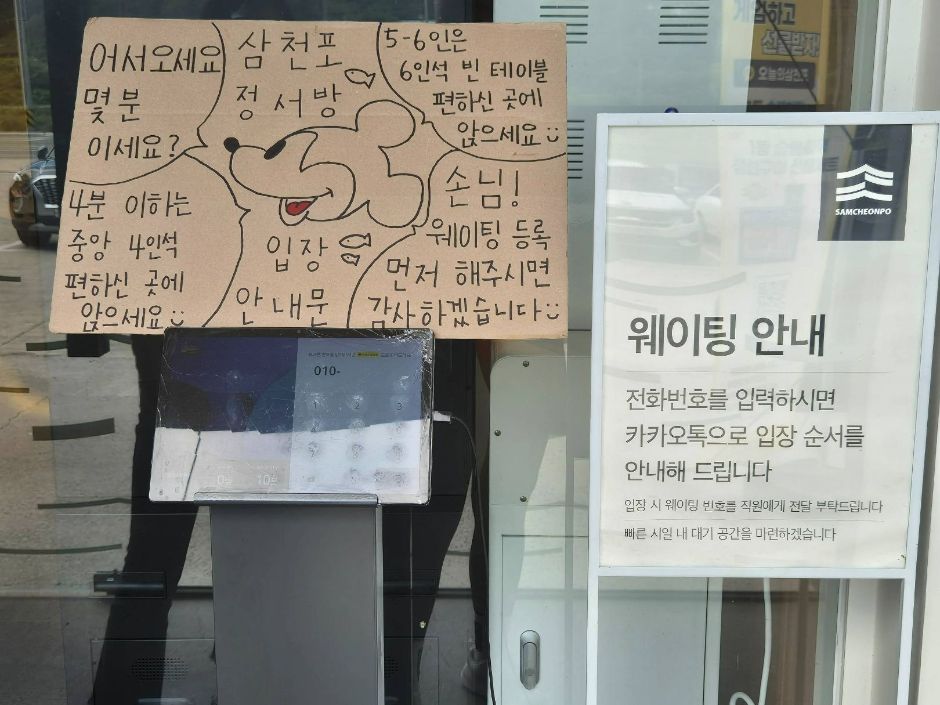 어서오세요
몇분
이세요?
삼천포
정서방
5-6인은
6인석 빈 테이블
편하신 곳에
앉으세요
4분 이하는
중앙 4인석
편하신 곳에
앉으세요
입장
안내문
손님!
웨이팅 등록
먼저 해주시면
감사하겠습니다
010-
1 2 3
SAMCHEONPO
웨이팅 안내
전화번호를 입력하시면
카카오톡으로 입장 순서를
안내해 드립니다
입장 시 웨이팅 번호를 직원에게 전달 부탁드립니다
빠른 시일 내 대기 공간을 마련하겠습니다